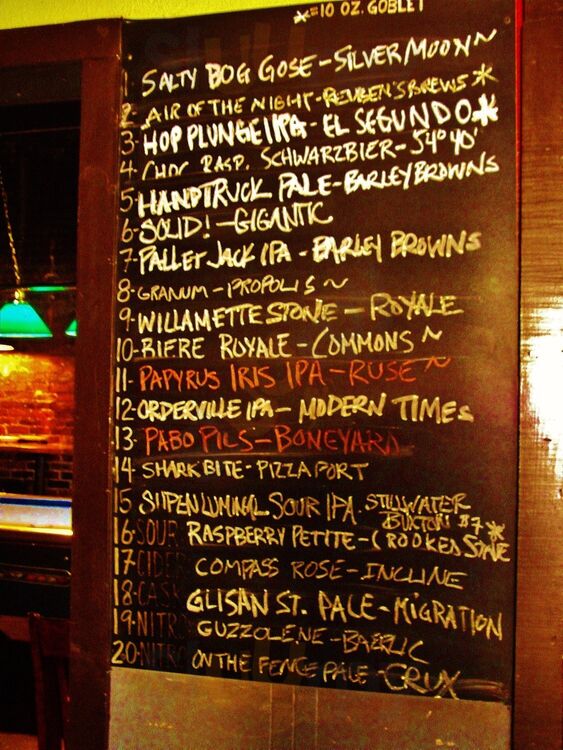 *=10 OZ. GOBLET
1 SALTY BOG GOSE-SILVER MOON~
2- AIR OF THE NIGHT-REUBEN'S BREWS*
3-HOP PLUNGE IPA-EL SEGUNDO*
4- CHOC RASP. SCHWARZBIER-54°40'
5-HANDTRUCK PALE-BARLEY BROWNS
6-SOLID!-GIGANTIC
7-PALLET JACK IPA-BARLEY BROWNS
8-GRANUM-PROPOLIS~
9-WILLAMETTE STONE-ROYALE
10-BIERE ROYALE-COMMONS~
11-PAPYRUS IRIS IPA-RUSE~
12-ORDERVILLE IPA-MODERN TIMES
13- PABO PILS-BONEYARD
14-SHARK BITE-PIZZA PORT
15 SOUR IPA. STILLWATER
BUXTON $7*
16-SOUR RASPBERRY PETITE-CROOKED STAVE
17-CIDER COMPASS ROSE-INCLINE
18-CASK GLISAN ST. PALE-MIGRATION
19-NITRO GUZZOLENE-BAERLIC
20-NITRO ON THE FENCE PALE-CRUX